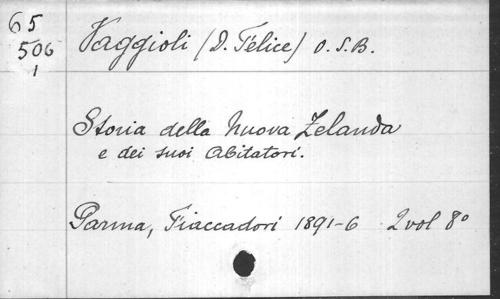 65
506
1
Vaggioli (D. Felice) O.S.B.
Storia della Nuova Zelanda
e dei suoi Abitatori.
Parma, Fiaccadori 1891-6 2 vol 8º